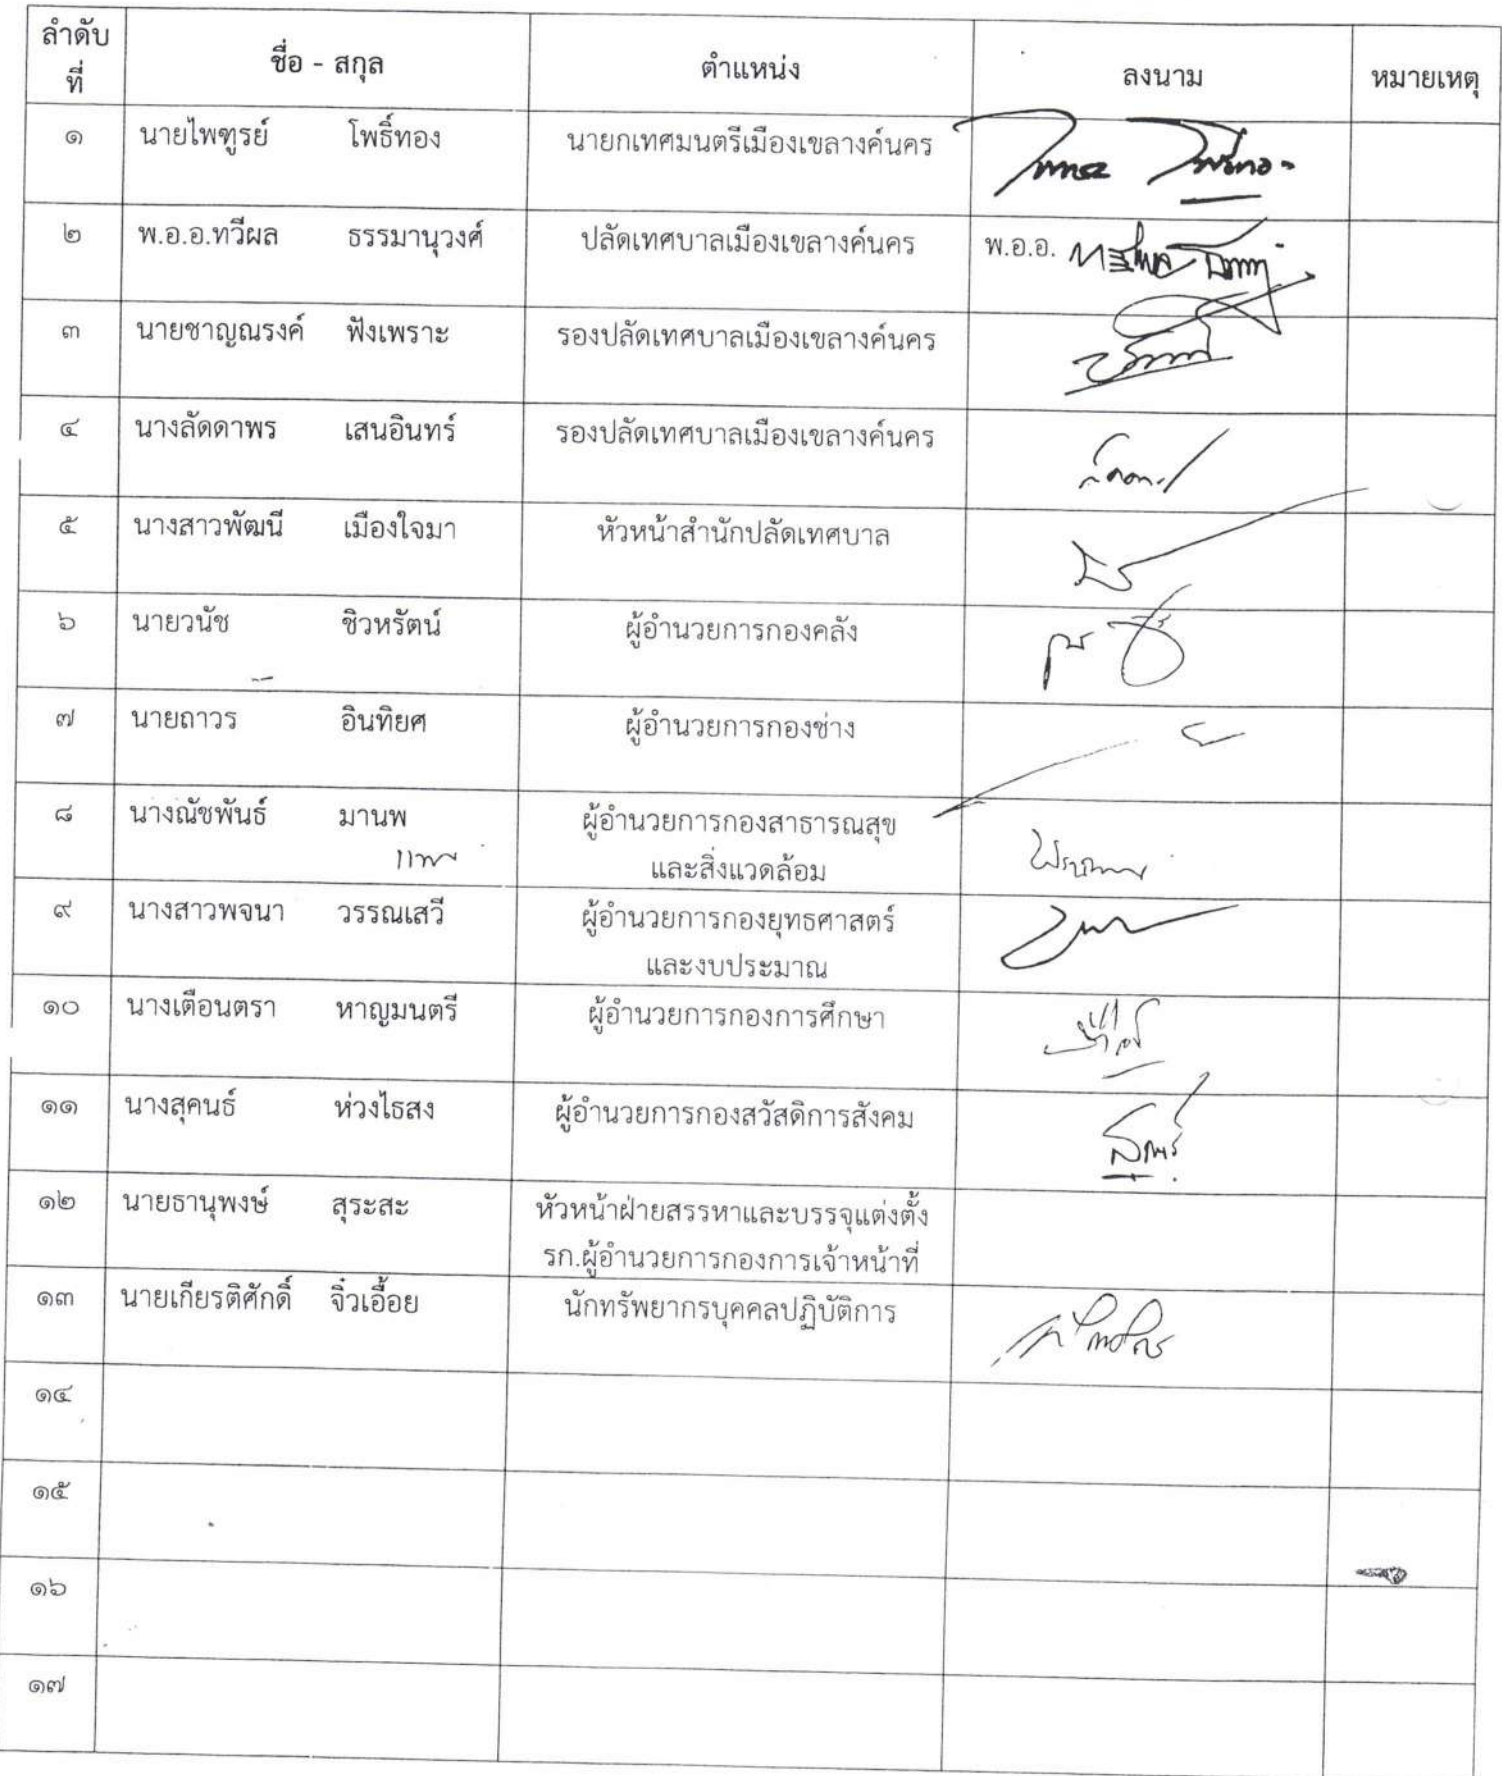 ลำดับ
ที่
ชื่อ - สกุล
ตำแหน่ง
ลงนาม
หมายเหตุ
๑ นายไพฑูรย์ โพธิ์ทอง นายกเทศมนตรีเมืองเขลางค์นคร
๒ พ.อ.อ.ทวีผล ธรรมานุวงศ์ ปลัดเทศบาลเมืองเขลางค์นคร พ.อ.อ.
๓ นายชาญณรงค์ ฟังเพราะ รองปลัดเทศบาลเมืองเขลางค์นคร
๔ นางลัดดาพร เสนอินทร์ รองปลัดเทศบาลเมืองเขลางค์นคร
๕ นางสาวพัฒนี เมืองใจมา หัวหน้าสำนักปลัดเทศบาล
๖ นายวนัช ชิวหรัตน์ ผู้อำนวยการกองคลัง
๗ นายถาวร อินทิยศ ผู้อำนวยการกองช่าง
๘ นางณัชพันธ์ มานพ ผู้อำนวยการกองสาธารณสุข
และสิ่งแวดล้อม
๙ นางสาวพจนา วรรณเสวี ผู้อำนวยการกองยุทธศาสตร์
และงบประมาณ
๑๐ นางเตือนตรา หาญมนตรี ผู้อำนวยการกองการศึกษา
๑๑ นางสุคนธ์ ห่วงไธสง ผู้อำนวยการกองสวัสดิการสังคม
๑๒ นายธานุพงษ์ สุระสะ หัวหน้าฝ่ายสรรหาและบรรจุแต่งตั้ง
รก.ผู้อำนวยการกองการเจ้าหน้าที่
๑๓ นายเกียรติศักดิ์ จิ๋วเอื้อย นักทรัพยากรบุคคลปฏิบัติการ
๑๔
๑๕
๑๖
๑๗